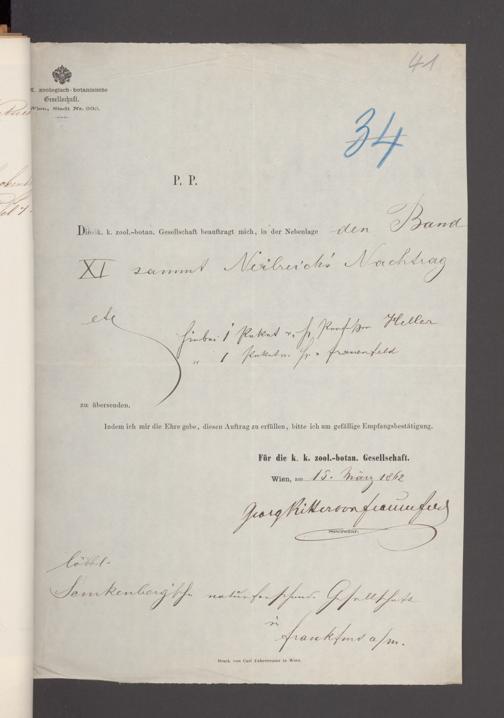 41
K. zoologisch-botanische
Gesellschaft.
Wien, Stadt Nr.
34
P. P.
Die k. k. zool.-botan. Gesellschaft beauftragt mich, in der Nebenlage den Band
XI sammt Neilreich's Nachtrag
etc
hiebei 1 Paket v. H. Professor Heller
" 1 Paket v. Hr. v. Frauenfeld
zu übersenden.
Indem ich mir die Ehre gebe, diesen Auftrag zu erfüllen, bitte ich um gefällige Empfangsbestätigung.
Für die k. k. zool.-botan. Gesellschaft.
Wien, am 15. März 1862
Georg Ritter von Frauenfeld
Secretär.
löbbl.
Senkenberg'sche naturforschende Gesellschaft
in
Frankfurt a/m.
Druck von Carl Ueberreuter in Wien.